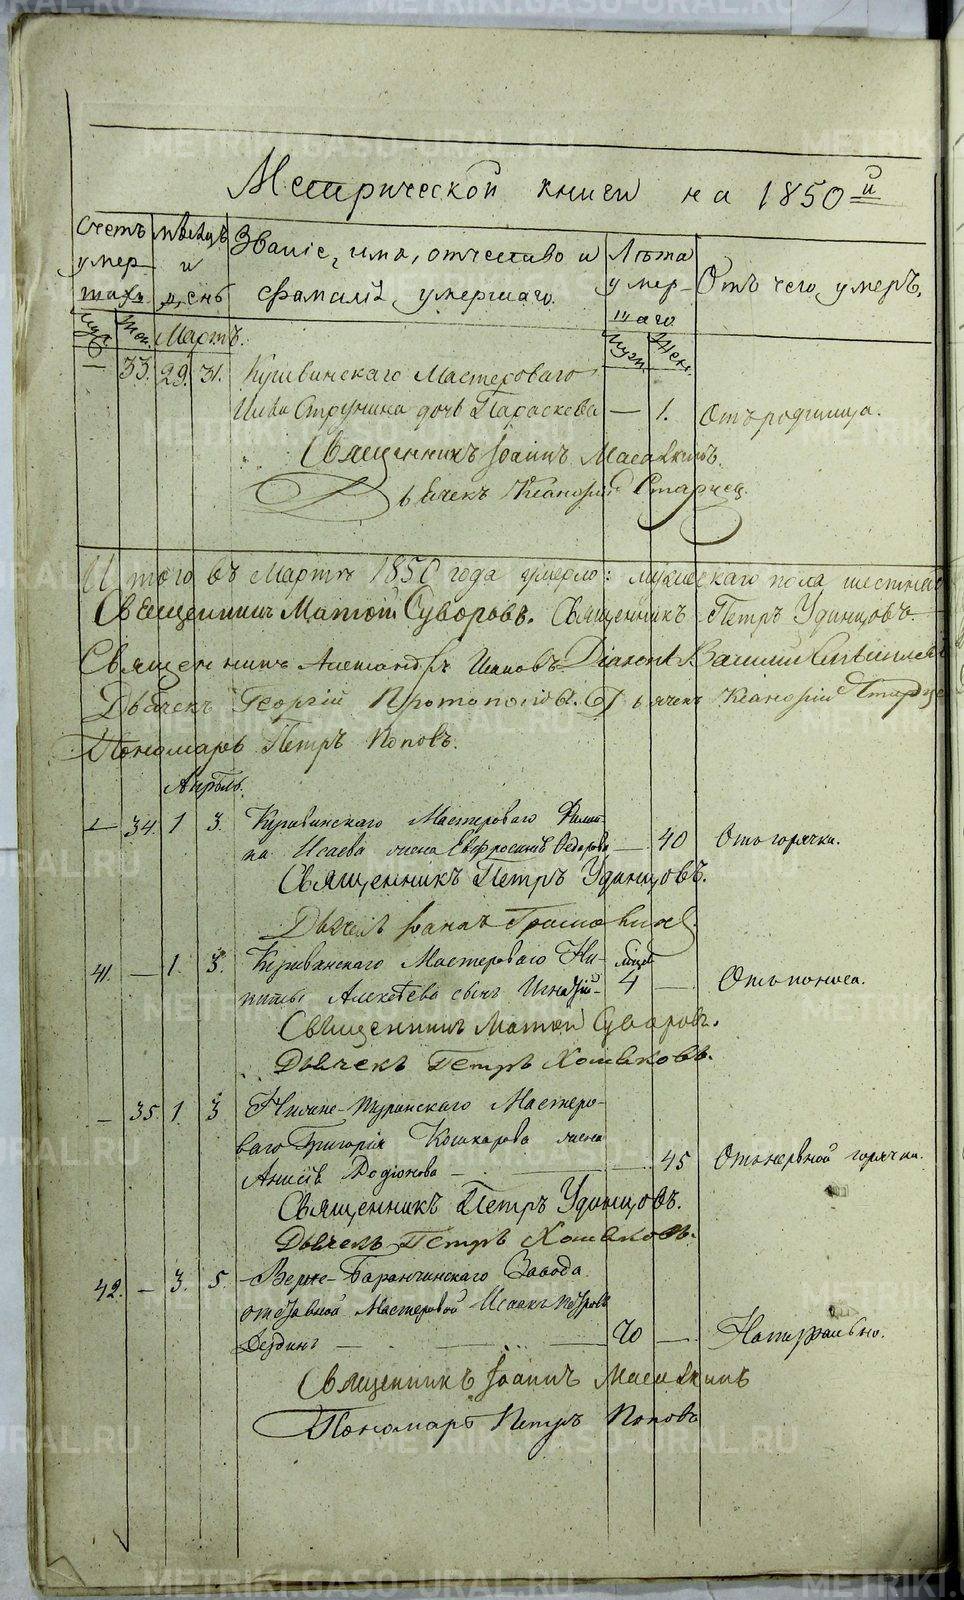 Метрической книги на 1850й
Счетъ умершихъ
мѣсяцъ и день
Званіе, имя, отчество и фамилія умершаго.
Лѣта умершаго
Отъ чего умеръ,
Муж. Жен. Мартъ. Муж. Жен.
— 33. 29. 31. Кушвинскаго Мастероваго
Струнина дочь Параскева — 1. Отъ родимца.
Священникъ Іоаннъ
Дьячекъ Старцев.
Итого въ Мартѣ 1850 года умерло: мужескаго пола
Священникъ Матѳій Суворовъ. Священникъ Петръ Удинцовъ.
Священникъ Александръ Поповъ. Василій
Дьячекъ Георгій Протопоповъ. Дьячекъ
Пономарь Петръ Поповъ.
Апрѣль.
— 34. 1 3. Кушвинскаго Мастероваго Филип-
па Исаева жена Евфросинія Ѳедорова — 40 Отъ горячки.
Священникъ Петръ Удинцовъ.
Дьячекъ
41. — 1. 3. Кушвинскаго Мастероваго Ни-
киты Алексѣева сынъ Игнатій- 4 — Отъ поноса.
Священникъ Матѳій Суворовъ.
Дьячекъ Петръ Хомяковъ.
— 35. 1. 3 Нижне-Туринскаго Мастеро-
ваго Григорія Кошкарова жена
Анисія Родіонова — 45 Отъ нервной горячки.
Священникъ Петръ Удинцовъ.
Дьячекъ Петръ Хомяковъ.
42. — 3. 5. Верхне-Баранчинскаго Завода
отставной Мастеровой Исаакъ Петровъ
70 — Натурально.
Священникъ Іоаннъ
Пономарь Петръ Поповъ
METRIKI.GASO-URAL.RU